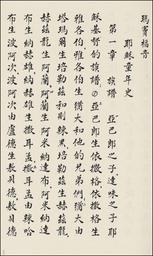 瑪竇福音
耶穌童年史
第一章 族譜 亞巴郎之子達味之子耶
穌基督的族譜亞巴郎生依撒格依撒格生
雅各伯雅各伯生猶大和他的兄弟們猶大由
塔瑪爾生培勒茲和則辣黑培勒茲生赫茲龍
赫茲龍生阿蘭阿蘭生阿米納達布阿米納達
布生納赫雄納赫雄生撒耳孟撒耳孟由辣哈
布生波阿次波阿次由盧德生敖貝德敖貝德